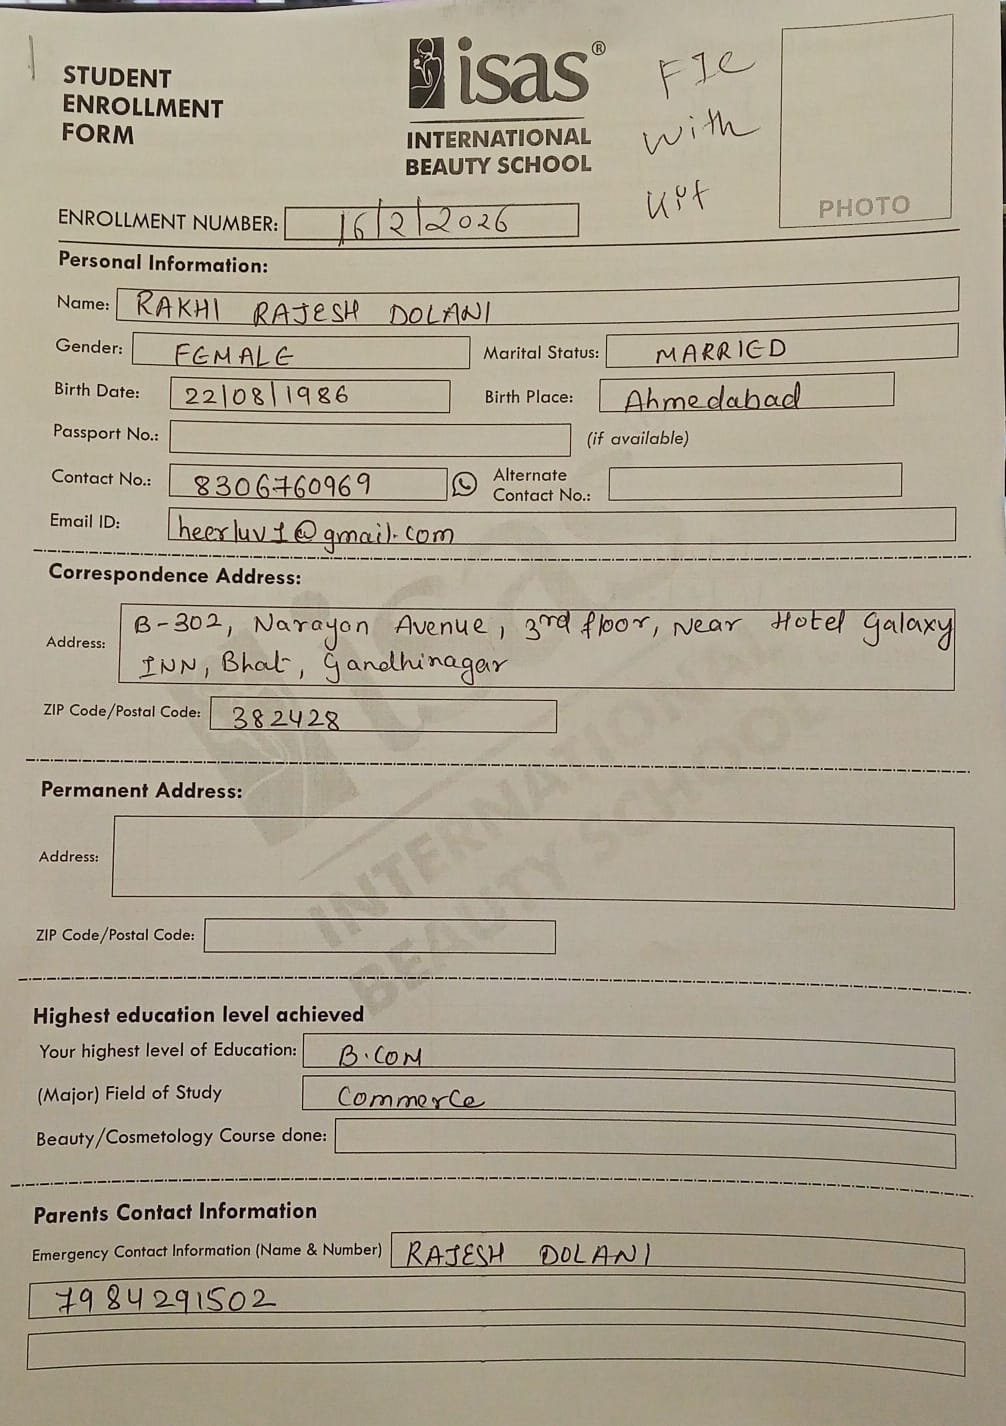 STUDENT
ENROLLMENT
FORM
isas®
INTERNATIONAL
BEAUTY SCHOOL
FIC
with
kit
PHOTO
ENROLLMENT NUMBER: 16/2/2026
Personal Information:
Name: RAKHI RAJESH DOLANI
Gender: FEMALE Marital Status: MARRIED
Birth Date: 22/08/1986 Birth Place: Ahmedabad
Passport No.: (if available)
Contact No.: 8306760969 Alternate
Contact No.:
Email ID: heerluv1@gmail.com
Correspondence Address:
Address: B-302, Narayan Avenue, 3rd floor, Near Hotel Galaxy
INN, Bhat, Gandhinagar
ZIP Code/Postal Code: 382428
Permanent Address:
Address:
ZIP Code/Postal Code:
isas
INTERNATIONAL
BEAUTY SCHOOL
Highest education level achieved
Your highest level of Education: B.COM
(Major) Field of Study Commerce
Beauty/Cosmetology Course done:
Parents Contact Information
Emergency Contact Information (Name & Number) RAJESH DOLANI
7984291502